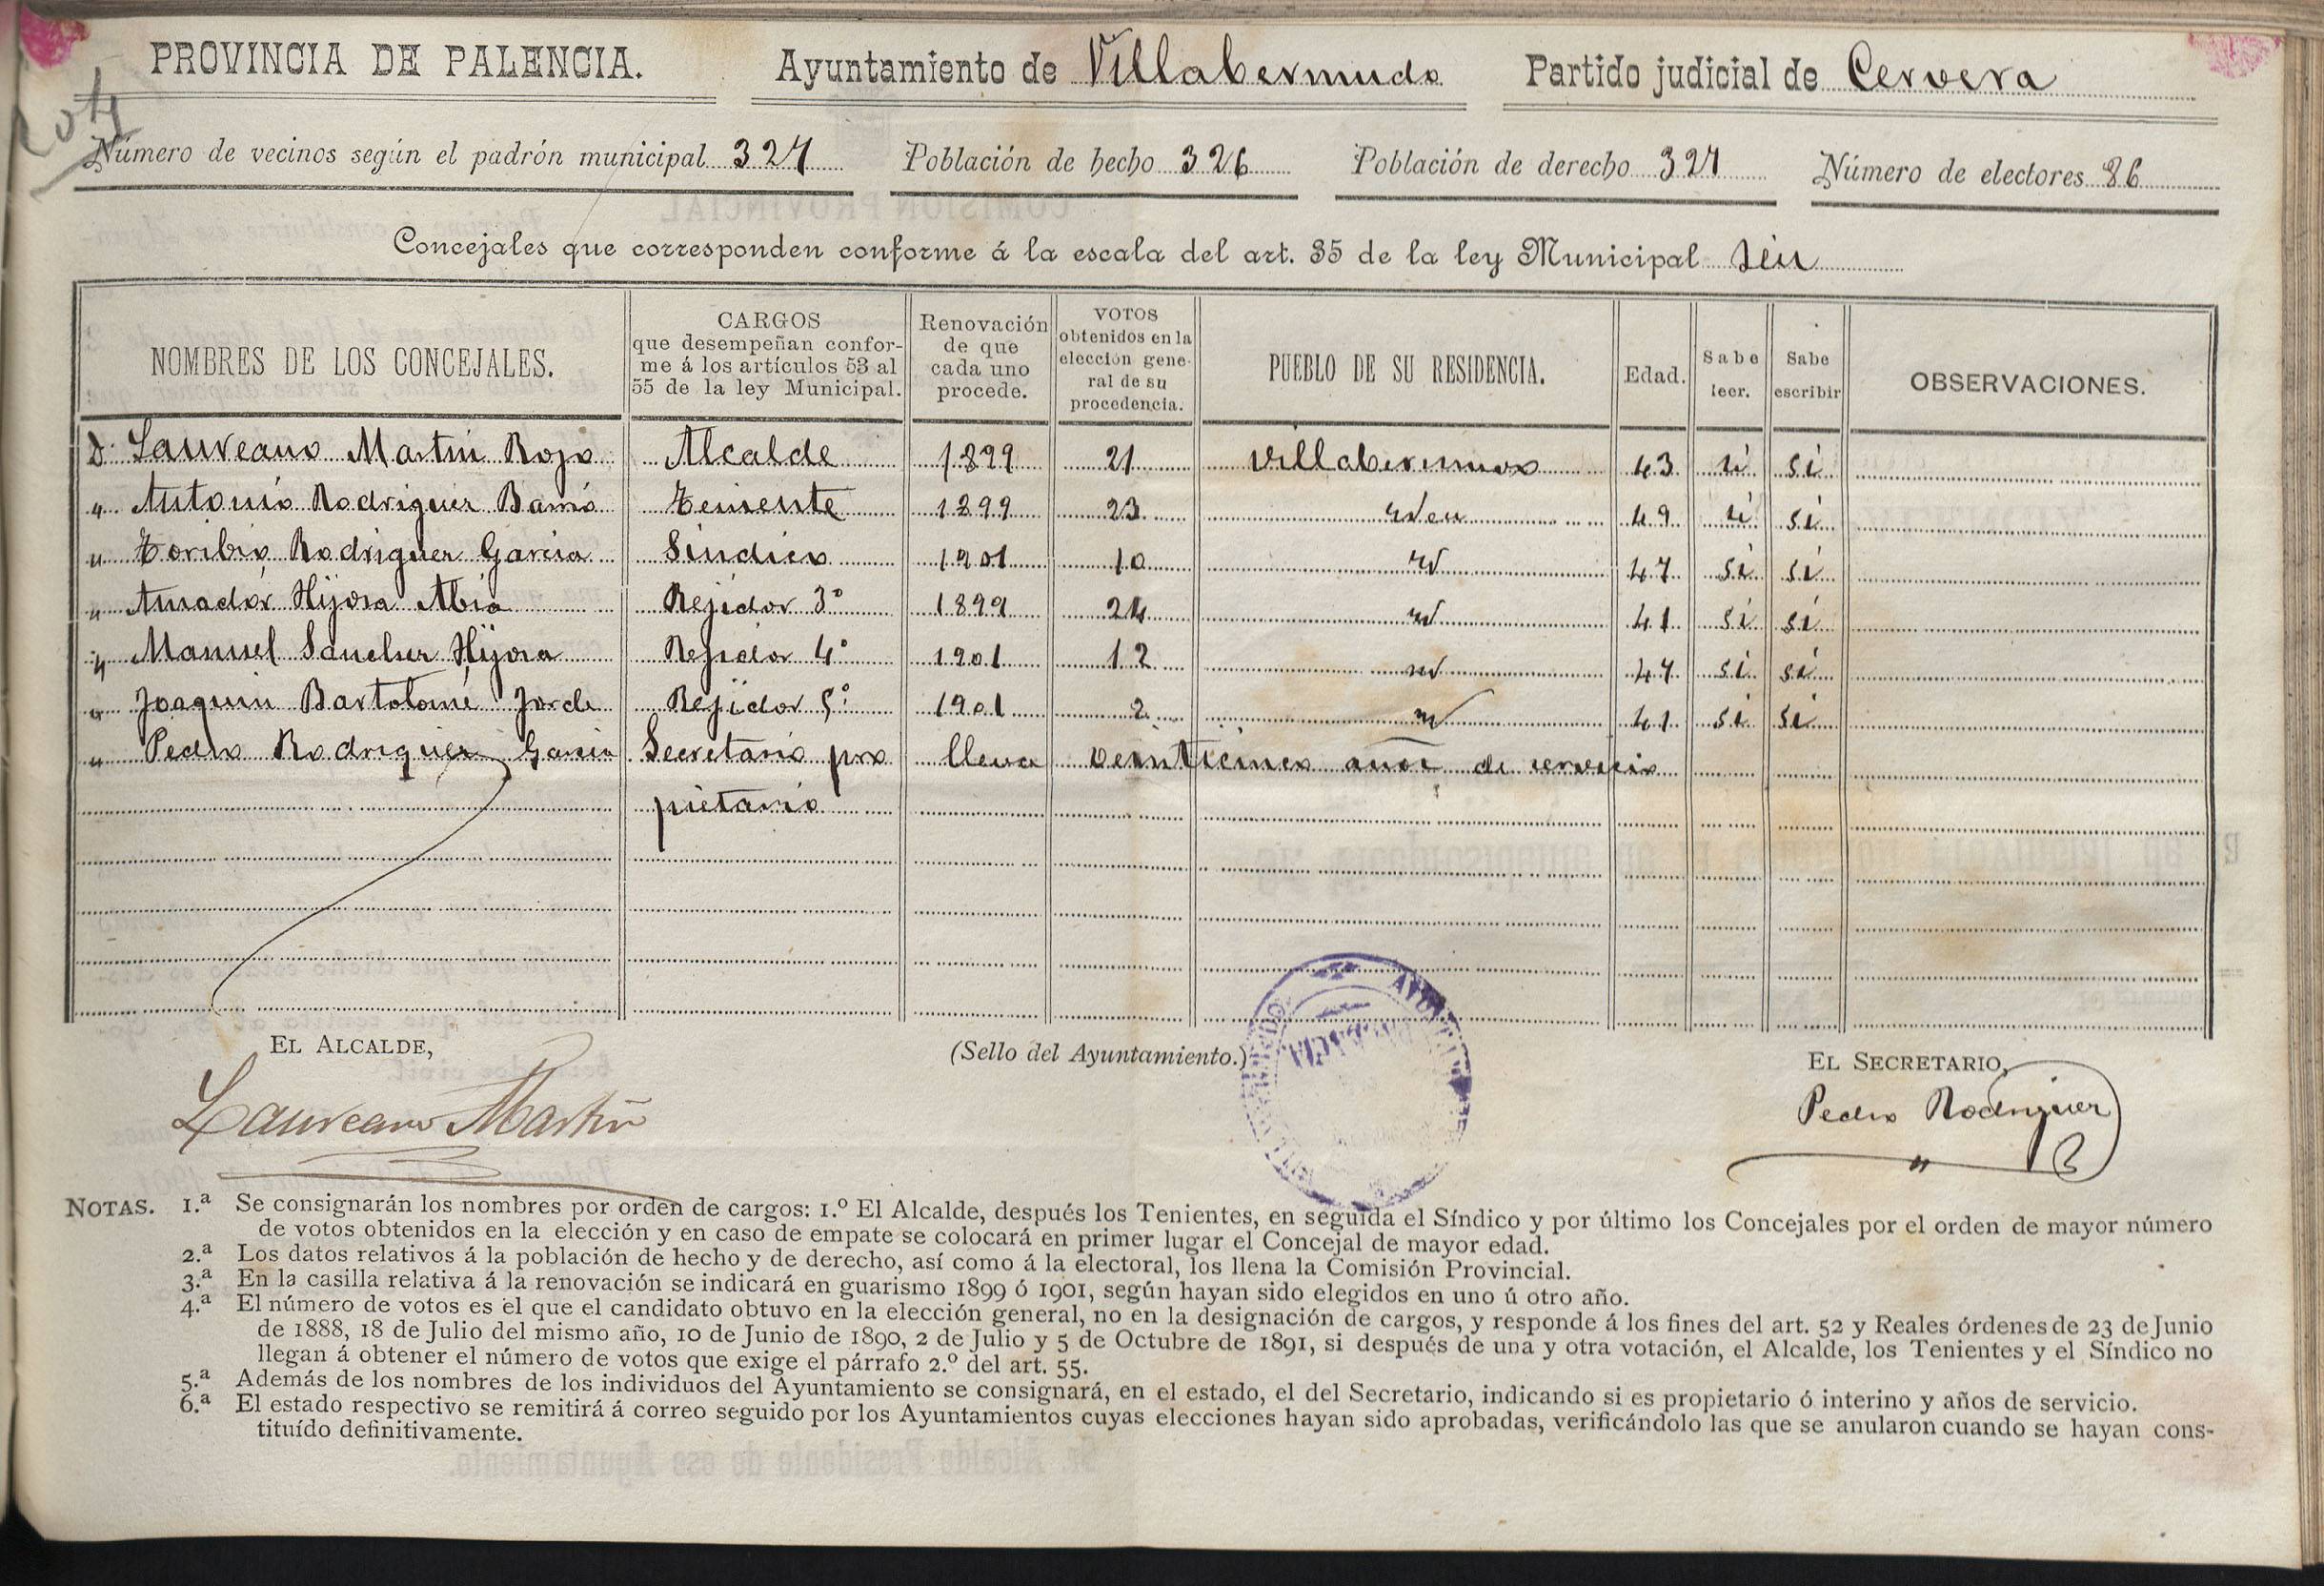 PROVINCIA DE PALENCIA. Ayuntamiento de Villabermudo Partido judicial de Cervera
Número de vecinos según el padrón municipal 327 Población de hecho 326 Población de derecho 327 Número de electores 86
Concejales que corresponden conforme á la escala del art. 35 de la ley Municipal seis
NOMBRES DE LOS CONCEJALES. CARGOS que desempeñan conforme á los artículos 53 al 55 de la ley Municipal. Renovación de que cada uno procede. VOTOS obtenidos en la elección general de su procedencia. PUEBLO DE SU RESIDENCIA. Edad. Sabe leer. Sabe escribir OBSERVACIONES.
D. Laureano Martin Rojo Alcalde 1899 21 Villabermudo 43 si si
" Antonio Rodriguez Barrio Teniente 1899 23 Idem 49 si si
" Toribio Rodriguez Garcia Sindico 1901 10 id 47 si si
" Amador Hijosa Abia Rejidor 3º 1899 24 id 41 si si
" Manuel Sanchez Hijosa Rejidor 4º 1901 12 id 47 si si
" Joaquin Bartolomé Jorde Rejidor 5º 1901 2 id 41 si si
" Pedro Rodriguez Garcia Secretario pro lleva veinticinco años de servicio
pietario
EL ALCALDE, (Sello del Ayuntamiento.) EL SECRETARIO,
Laureano Martin Pedro Rodriguez
NOTAS. 1.ª Se consignarán los nombres por orden de cargos: 1.º El Alcalde, después los Tenientes, en seguida el Síndico y por último los Concejales por el orden de mayor número
de votos obtenidos en la elección y en caso de empate se colocará en primer lugar el Concejal de mayor edad.
2.ª Los datos relativos á la población de hecho y de derecho, así como á la electoral, los llena la Comisión Provincial.
3.ª En la casilla relativa á la renovación se indicará en guarismo 1899 ó 1901, según hayan sido elegidos en uno ú otro año.
4.ª El número de votos es el que el candidato obtuvo en la elección general, no en la designación de cargos, y responde á los fines del art. 52 y Reales órdenes de 23 de Junio
de 1888, 18 de Julio del mismo año, 10 de Junio de 1890, 2 de Julio y 5 de Octubre de 1891, si después de una y otra votación, el Alcalde, los Tenientes y el Síndico no
llegan á obtener el número de votos que exige el párrafo 2.º del art. 55.
5.ª Además de los nombres de los individuos del Ayuntamiento se consignará, en el estado, el del Secretario, indicando si es propietario ó interino y años de servicio.
6.ª El estado respectivo se remitirá á correo seguido por los Ayuntamientos cuyas elecciones hayan sido aprobadas, verificándolo las que se anularon cuando se hayan cons-
tituído definitivamente.